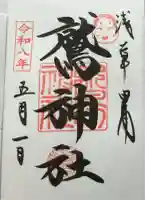 浅草田甫
鷲神社
令和八年
五月一日